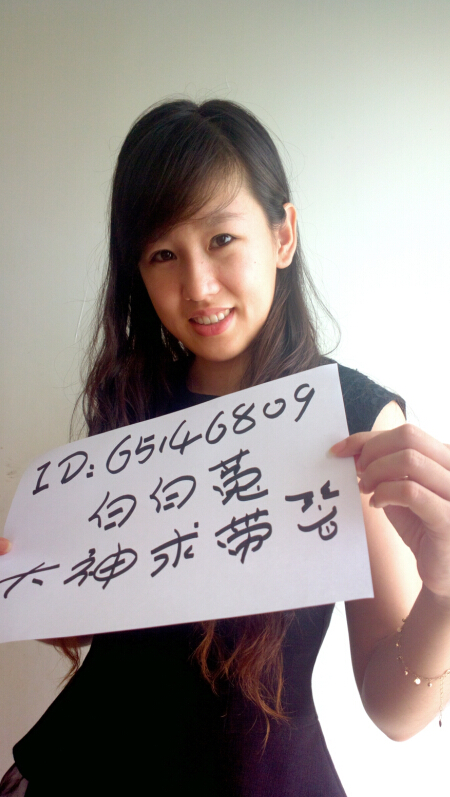 ID:65146809
白白菟
大神求带